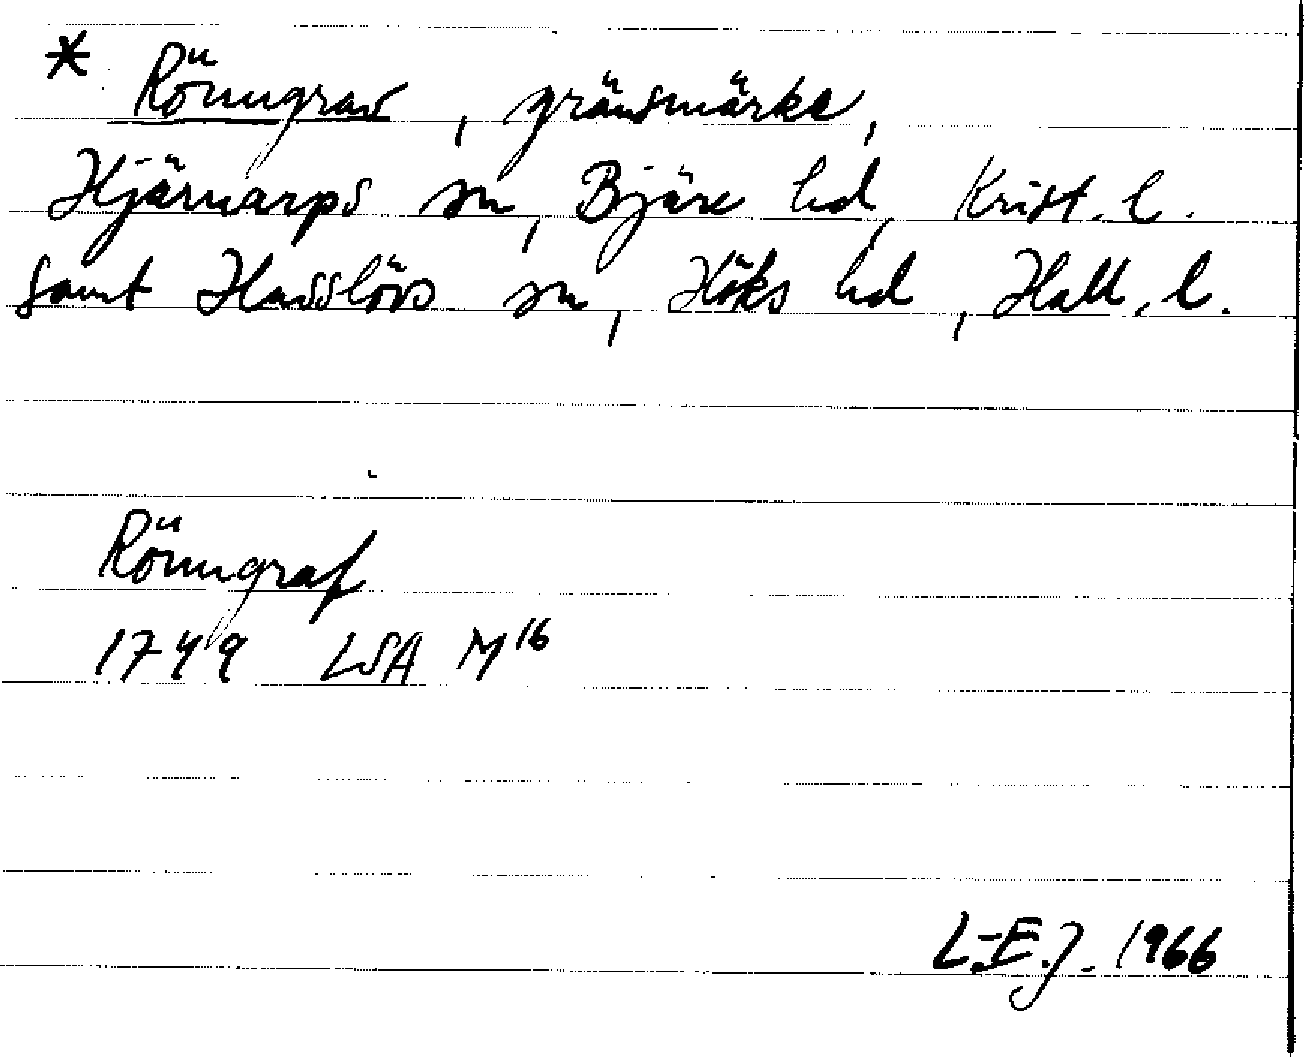 * Rönngrav, gränsmärke,
Hjärnarps sn, Bjäre hd, Krist. l.
samt Hasslövs sn, Höks hd, Hall. l.
Rönngraf
1749 LSA M16
L-E.J. 1966